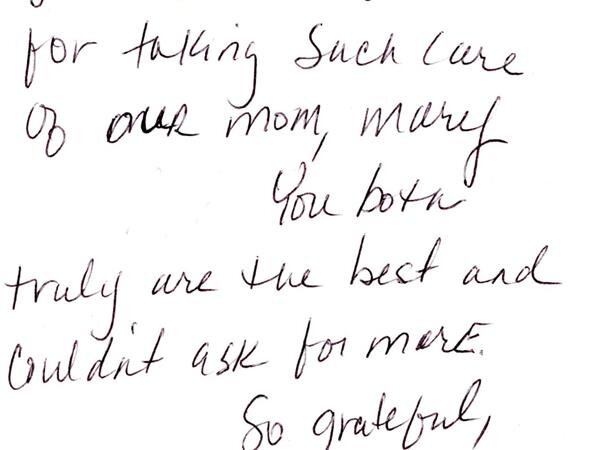 for taking Such care
of our mom, mary
You both
truly are the best and
Couldn't ask for more.
So grateful,